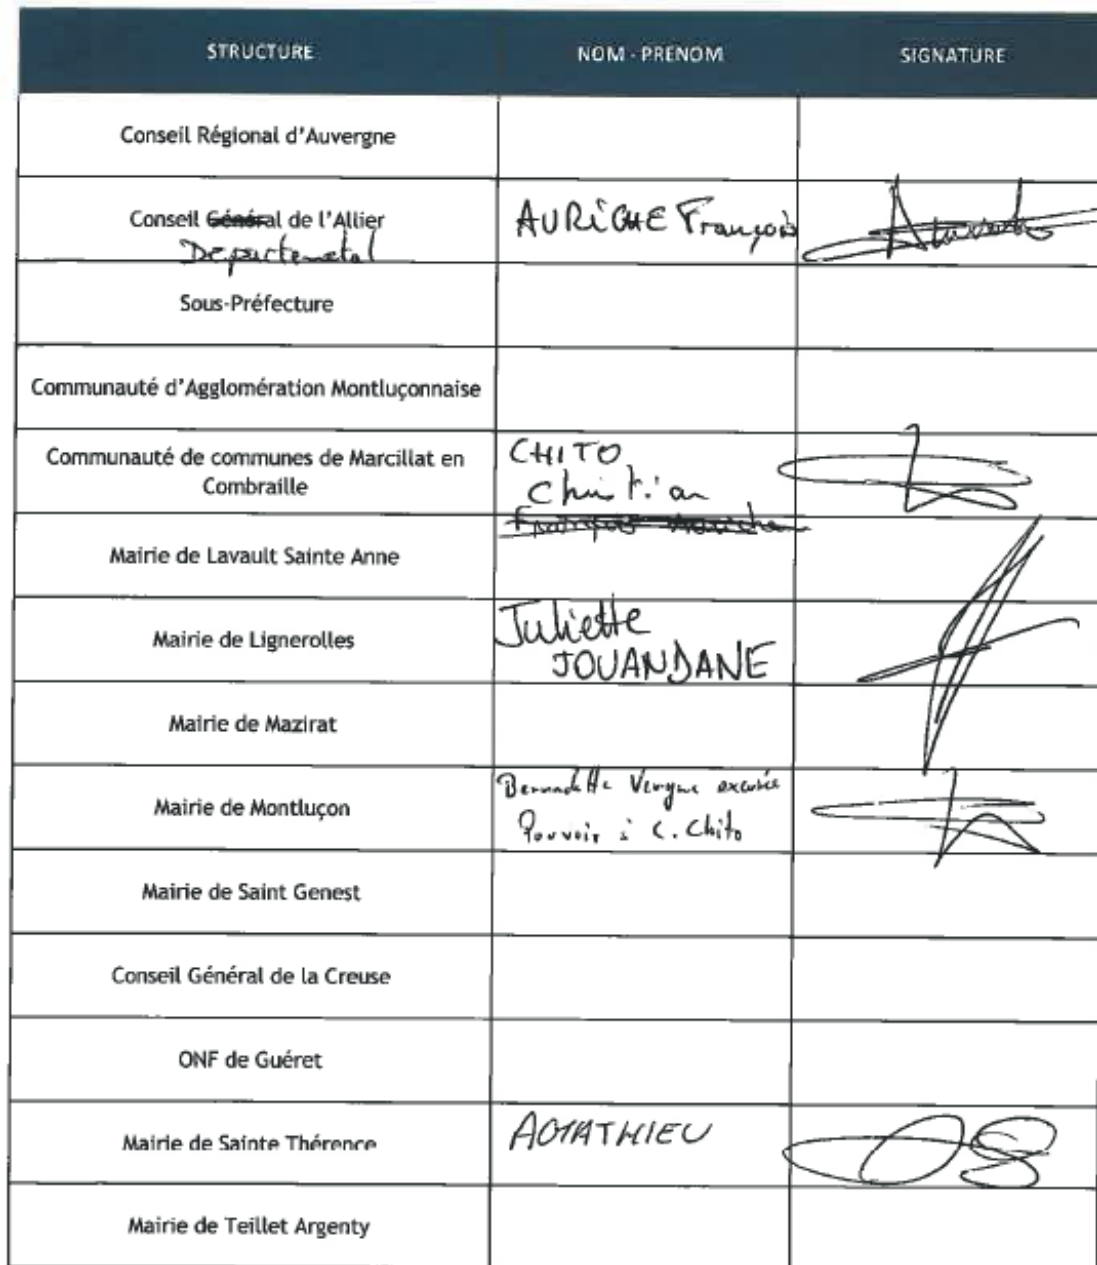 STRUCTURE NOM - PRENOM SIGNATURE
Conseil Régional d'Auvergne
Conseil Général de l'Allier AURICHE François
Departemetal
Sous-Préfecture
Communauté d'Agglomération Montluçonnaise
Communauté de communes de Marcillat en CHITO
Combraille Christian
Mairie de Lavault Sainte Anne
Mairie de Lignerolles Juliette
JOUANDANE
Mairie de Mazirat
Mairie de Montluçon Bernadette Vergne excusée
Pouvoir à C. Chito
Mairie de Saint Genest
Conseil Général de la Creuse
ONF de Guéret
Mairie de Sainte Thérence
Mairie de Teillet Argenty